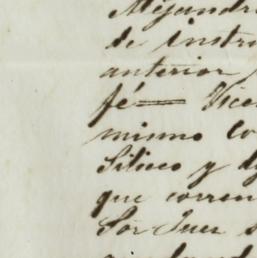 Alejandro
de instru
anterior
fé — Vice
mismo Co
Silíceo y d
que corren
Sor Juez s